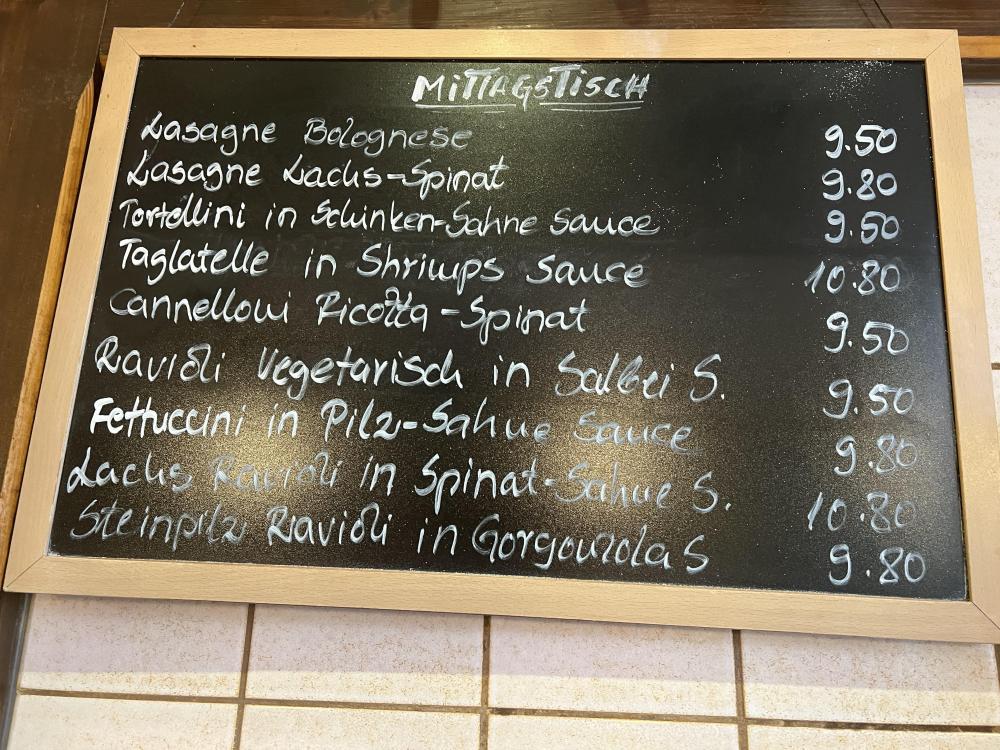 MITTAGSTISCH
Lasagne Bolognese 9.50
Lasagne Lachs-Spinat 9.80
Tortellini in Schinken-Sahne Sauce 9.50
Taglatelle in Shrimps Sauce 10.80
Cannelloni Ricotta-Spinat 9.50
Ravioli Vegetarisch in Salbei S. 9.50
Fettuccini in Pilz-Sahne Sauce 9.80
Lachs Ravioli in Spinat-Sahne S. 10.80
Steinpilz Ravioli in Gorgonzola S 9.80